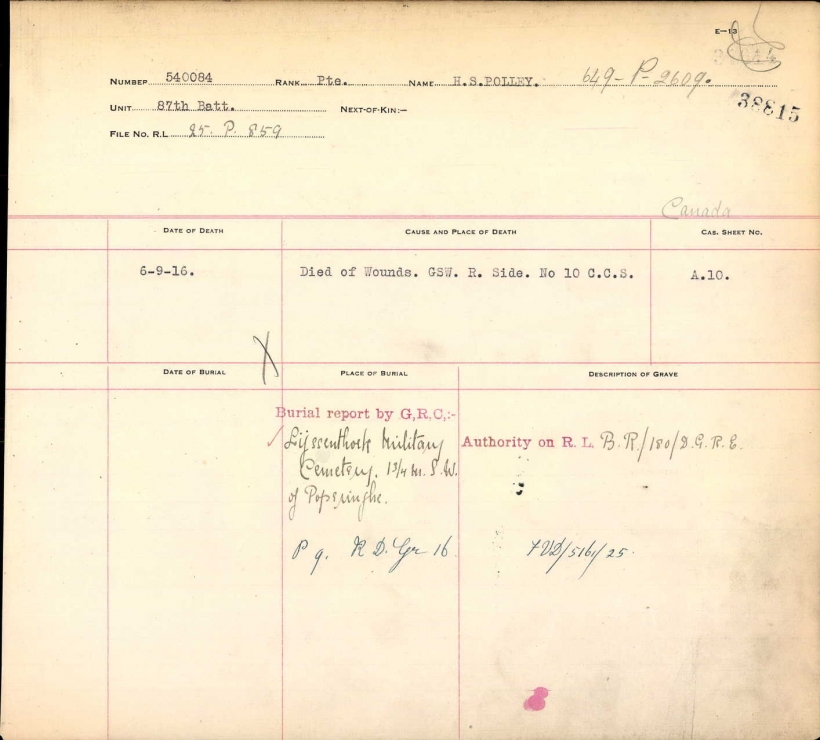 E-13
NUMBER 540084 RANK Pte. NAME H.S.POLLEY. 649-P-2609.
38815
UNIT 87th Batt. NEXT-OF-KIN:-
FILE NO. R.L. 25. P. 859
Canada
DATE OF DEATH CAUSE AND PLACE OF DEATH CAS. SHEET NO.
6-9-16. Died of Wounds. GSW. R. Side. No 10 C.C.S. A.10.
DATE OF BURIAL PLACE OF BURIAL DESCRIPTION OF GRAVE
Burial report by G,R.C,:-
Lijssenthoek Military Authority on R. L. B.R/180/D.G.R.E.
Cemetery. 1 3/4 m. S.W.
of Popsringhe.
P 9. R D. Gr 16 7VD/5161/25.